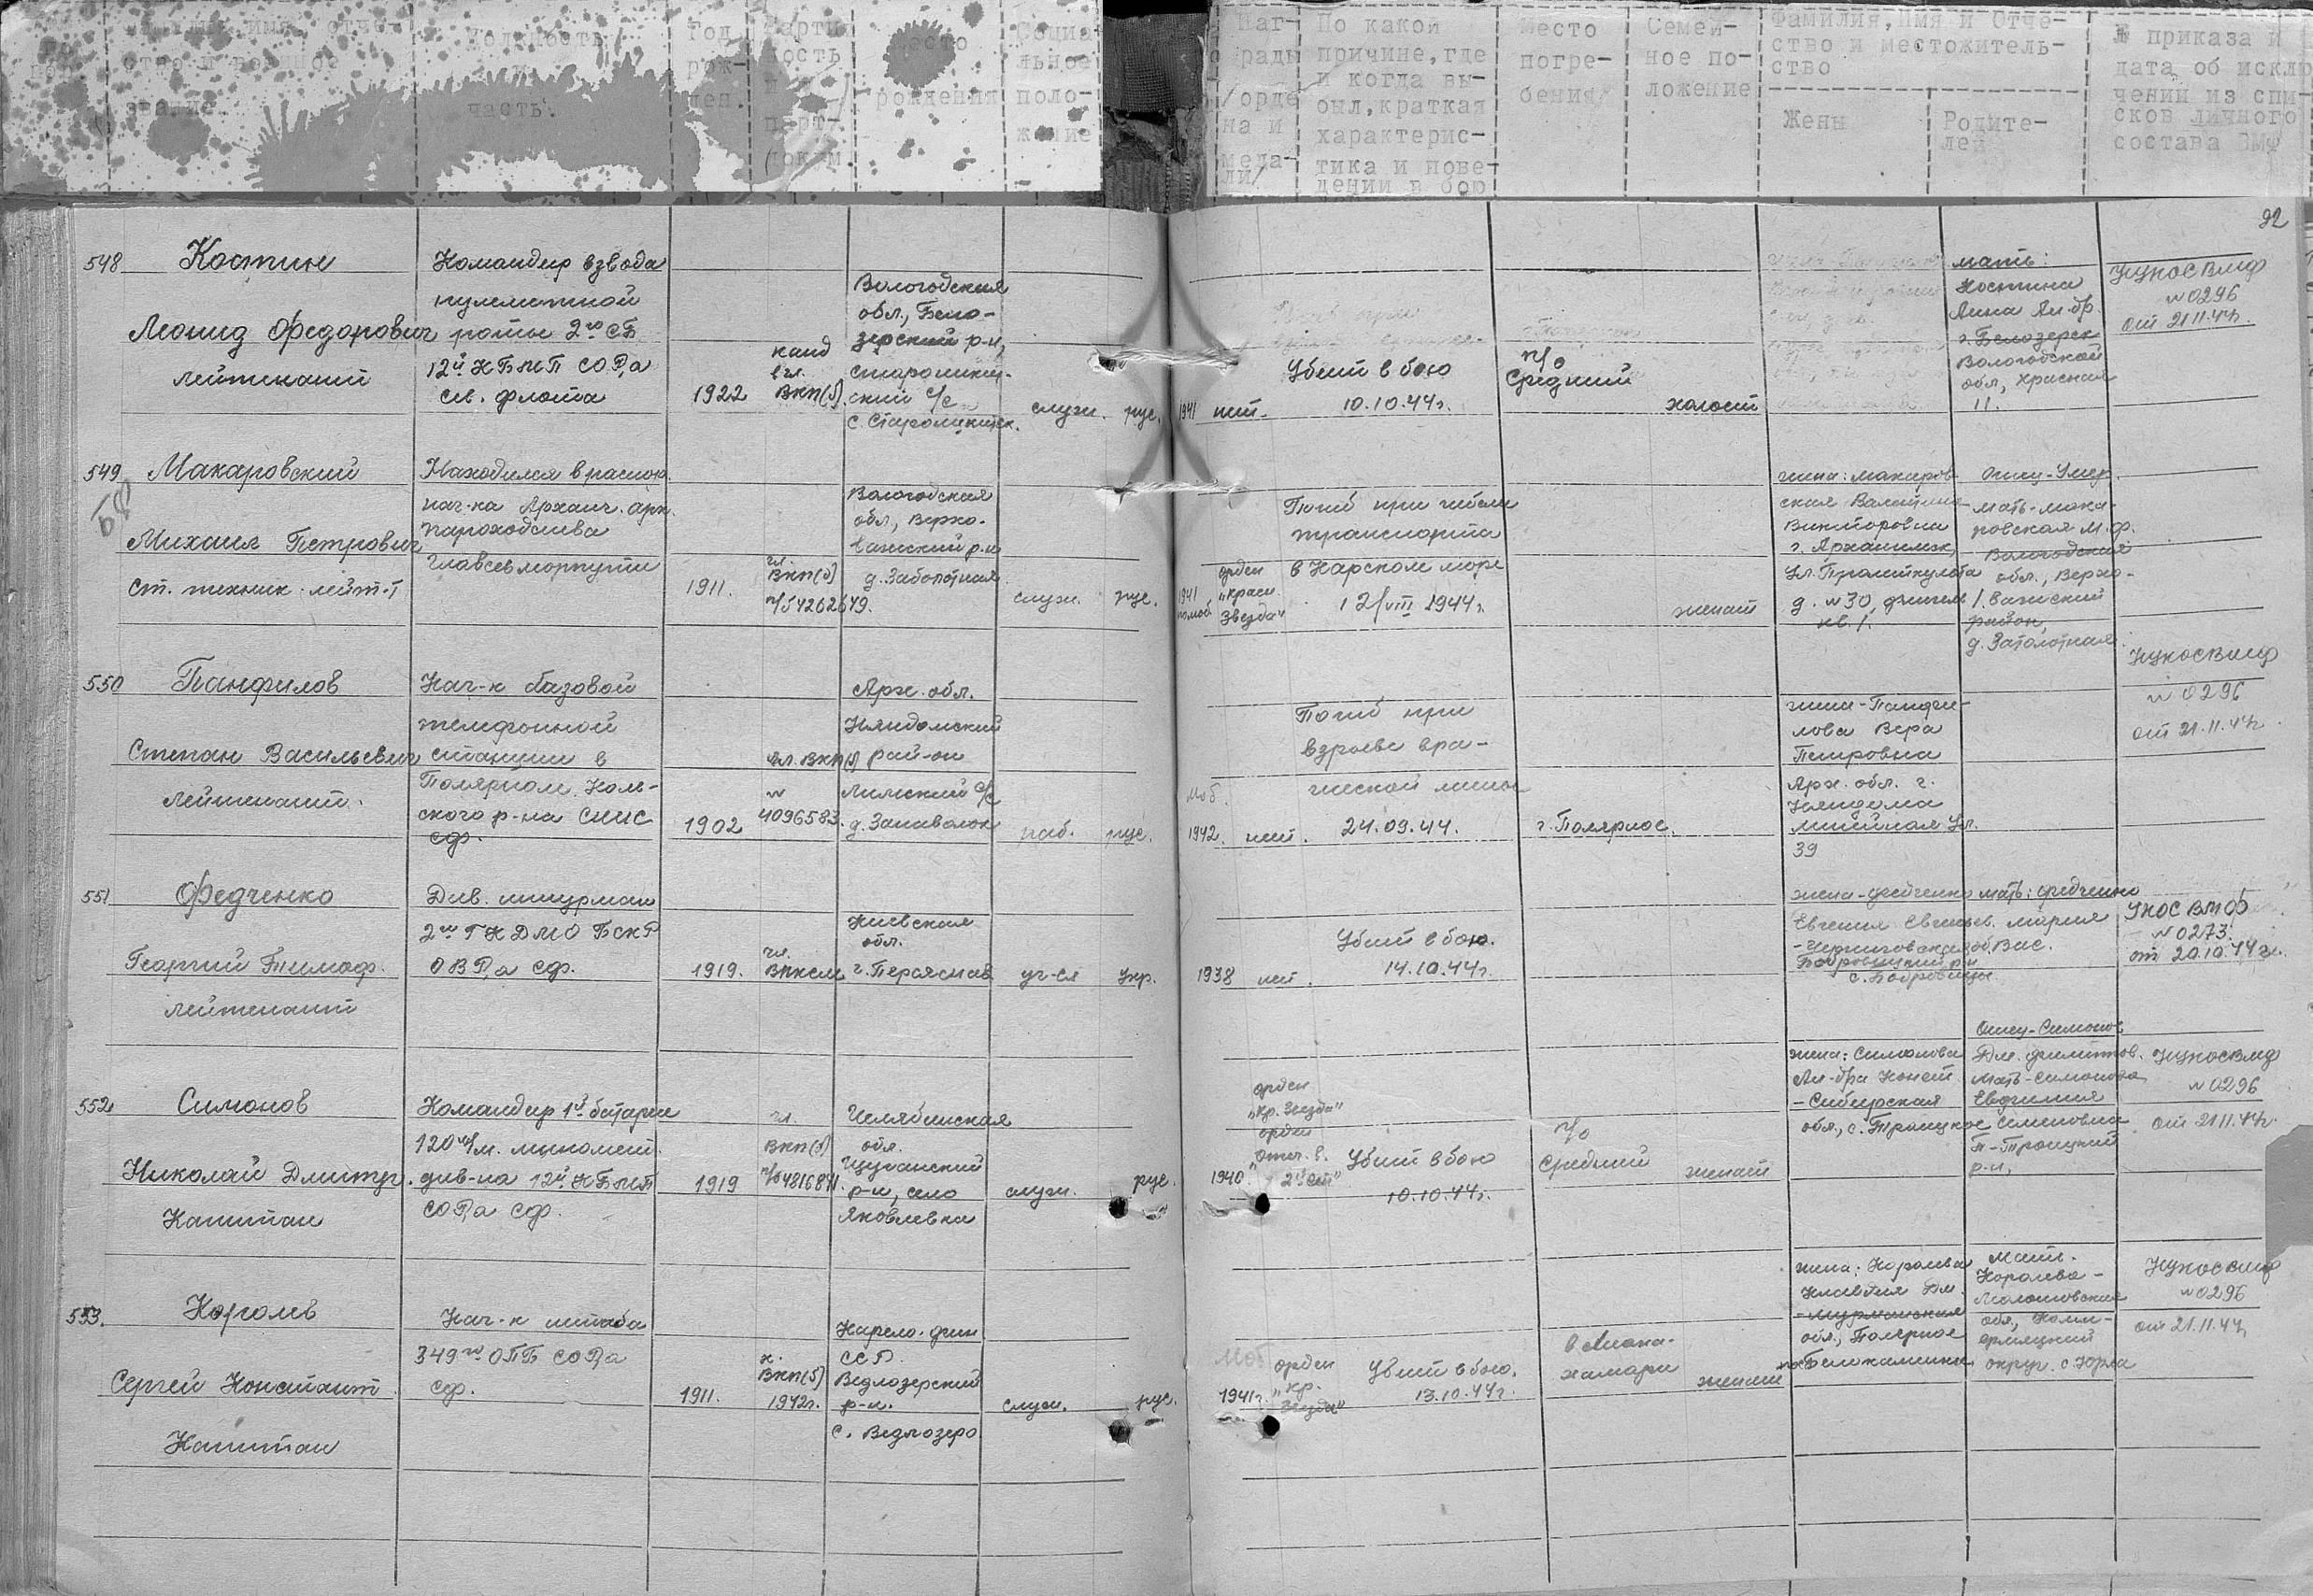 Фамилия, имя отче-
ство и военное
звание
Должность
и
часть
Год
рож-
ден.
Парти
ность
парт-
док-м
Место
рождения
Социа-
льное
поло-
жение
Наг-
рады
/орде
на и
меда-
ли/
По какой
причине, где
и когда вы-
был, краткая
характерис-
тика и пове-
дении в бою
Место
погре-
бения/
Семей-
ное по-
ложение
Фамилия, Имя и Отче-
ство и местожитель-
ство
Жены
Родите-
лей
№ приказа и
дата об исклю
чении из спи-
сков личного
состава ВМФ
92
548
Костин
Леонид Федорович
лейтенант
Командир взвода
пулеметной
роты 2го СБ
12й КБМП СОРа
Сев. флота
1922
канд
в чл.
ВКП(б).
Вологодская
обл, Бело-
зерский р-н,
ский с/с
служ.
рус.
1941
нет.
Убит в бою
10.10.44г.
п/о
Средний
холост
мать:
Костина
Анна Ал-др.
г. Белозерск
Вологодской
обл, Красная
11.
НУКОС ВМФ
№ 0296
от 21.11.44г.
549
Макаровский
Михаил Петрович
ст. техник-лейт-т
Находился в распор.
нач-ка Арханг. арк.
пароходства
Главсевморпути
1911.
чл.
ВКП(б)
п/б 4262679.
Вологодская
обл, Верхо-
важский р-н
д. Заболотная
служ.
рус.
1941
по моб
орден
"Красн.
Звезда"
Погиб при гибели
транспорта
в Карском море
12/VIII 1944г.
женат
жена: Макаров-
ская Валентина
Викторовна
г. Архангельск,
ул. Пролеткульта
д. №30, флигель 1.
кв. 1.
Отец-Умер.
мать-Мака-
ровская М.Ф.
Вологодская
обл., Верхо-
важский
район,
д. Заболотная
550
Панфилов
Степан Васильевич
лейтенант.
Нач-к базовой
телефонной
станции в
Полярном Коль-
ского р-на СНиС
СФ.
1902
чл. ВКП(б)
№
4096583.
Арх. обл.
Няндомский
рай-он
Лимский с/с
д. Занаволок
раб.
рус.
моб.
1942.
нет.
Погиб при
взрыве вра-
жеской мины
24.09.44.
г. Полярное.
жена-Панфи-
лова Вера
Петровна
Арх. обл. г.
Няндома
Линейная ул.
39
НУКОСВМФ
№ 0296
от 21.11.44г.
551
Федченко
Георгий Тимоф.
лейтенант
Див. штурман
2го ГКДМО БСКР
ОВРа СФ.
1919.
чл.
ВЛКСМ
Киевская
обл.
г. Переяслав
уч-ся
укр.
1938
нет.
Убит в бою.
14.10.44г.
жена-Федченко
Евгения Евгеньев.
-Черниговская об.
Бобровицкий р-н
с. Бобровицы
мать: Федченко
Мария
Вас.
УКОС ВМФ
№ 0273
от 20.10.44г.
552
Симонов
Николай Дмитр.
Капитан
Командир 1й батареи
120м/м. миномет.
див-на 12й КБМП
СОРа СФ.
1919
чл.
ВКП(б)
п/б 4816871.
Челябинская
обл.
р-н, село
Яковлевка
служ.
рус.
1940
орден
"Кр. Звезда"
орден
Отеч. в.
2й ст"
Убит в бою
10.10.44г.
п/о
Средний
женат
жена: Симонова
Ал-дра Конст
-Сибирская
обл, с. Троицкое
Отец-Симонов
Дм. Филиппов.
Мать-Симонова
Евдокия
Семеновна
П-Троицкий
р-н,
НУКОСВМФ
№ 0296
от 21.11.44г.
553.
Королев
Сергей Констант.
Капитан
Нач-к штаба
349го ОПБ СОРа
СФ.
1911.
к.
ВКП(б)
1942г.
Карело-фин
ССР.
Ведлозерский
р-н.
с. Ведлозеро
служ.
рус.
моб
1941г.
орден
"Кр.
Звезда"
Убит в бою.
13.10.44г.
в Лиина-
хамари
женат
жена: Королева
Клавдия Дм.
-Мурманская
обл, Полярное
пос. Белокаменка.
Мать-
Королева-
Молотовская
обл, Коми-
пермяцкий
округ. с. Юрла
НУКОСВМФ
№ 0296
от 21.11.44г